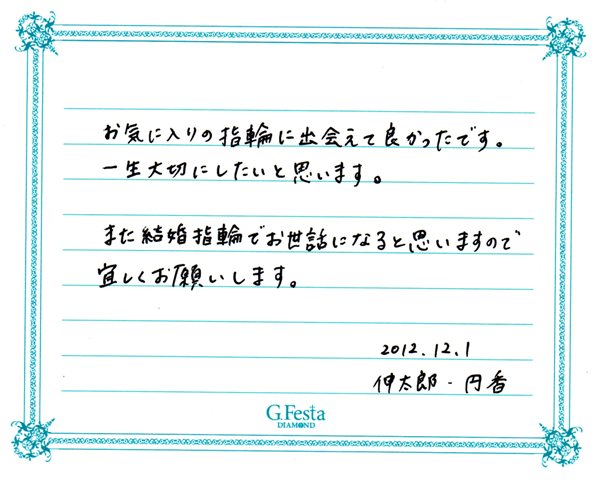 お気に入りの指輪に出会えて良かったです。
一生大切にしたいと思います。
また結婚指輪でお世話になると思いますので
宜しくお願いします。
2012.12.1
伸太郎・円香
G.Festa
DIAMOND